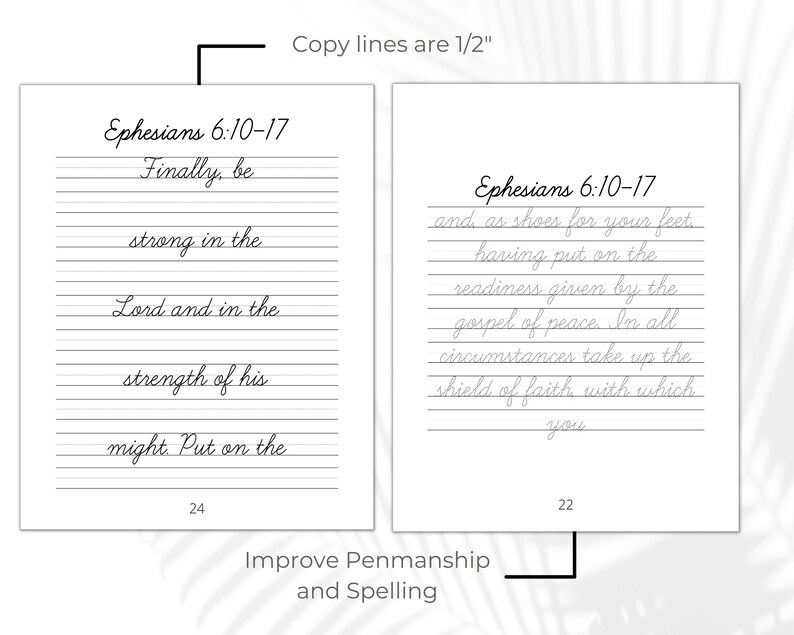 Copy lines are 1/2"
Ephesians 6:10-17
Finally, be
strong in the
Lord and in the
strength of his
might. Put on the
24
Ephesians 6:10-17
and, as shoes for your feet,
having put on the
readiness given by the
gospel of peace. In all
circumstances take up the
shield of faith, with which
you
22
Improve Penmanship
and Spelling